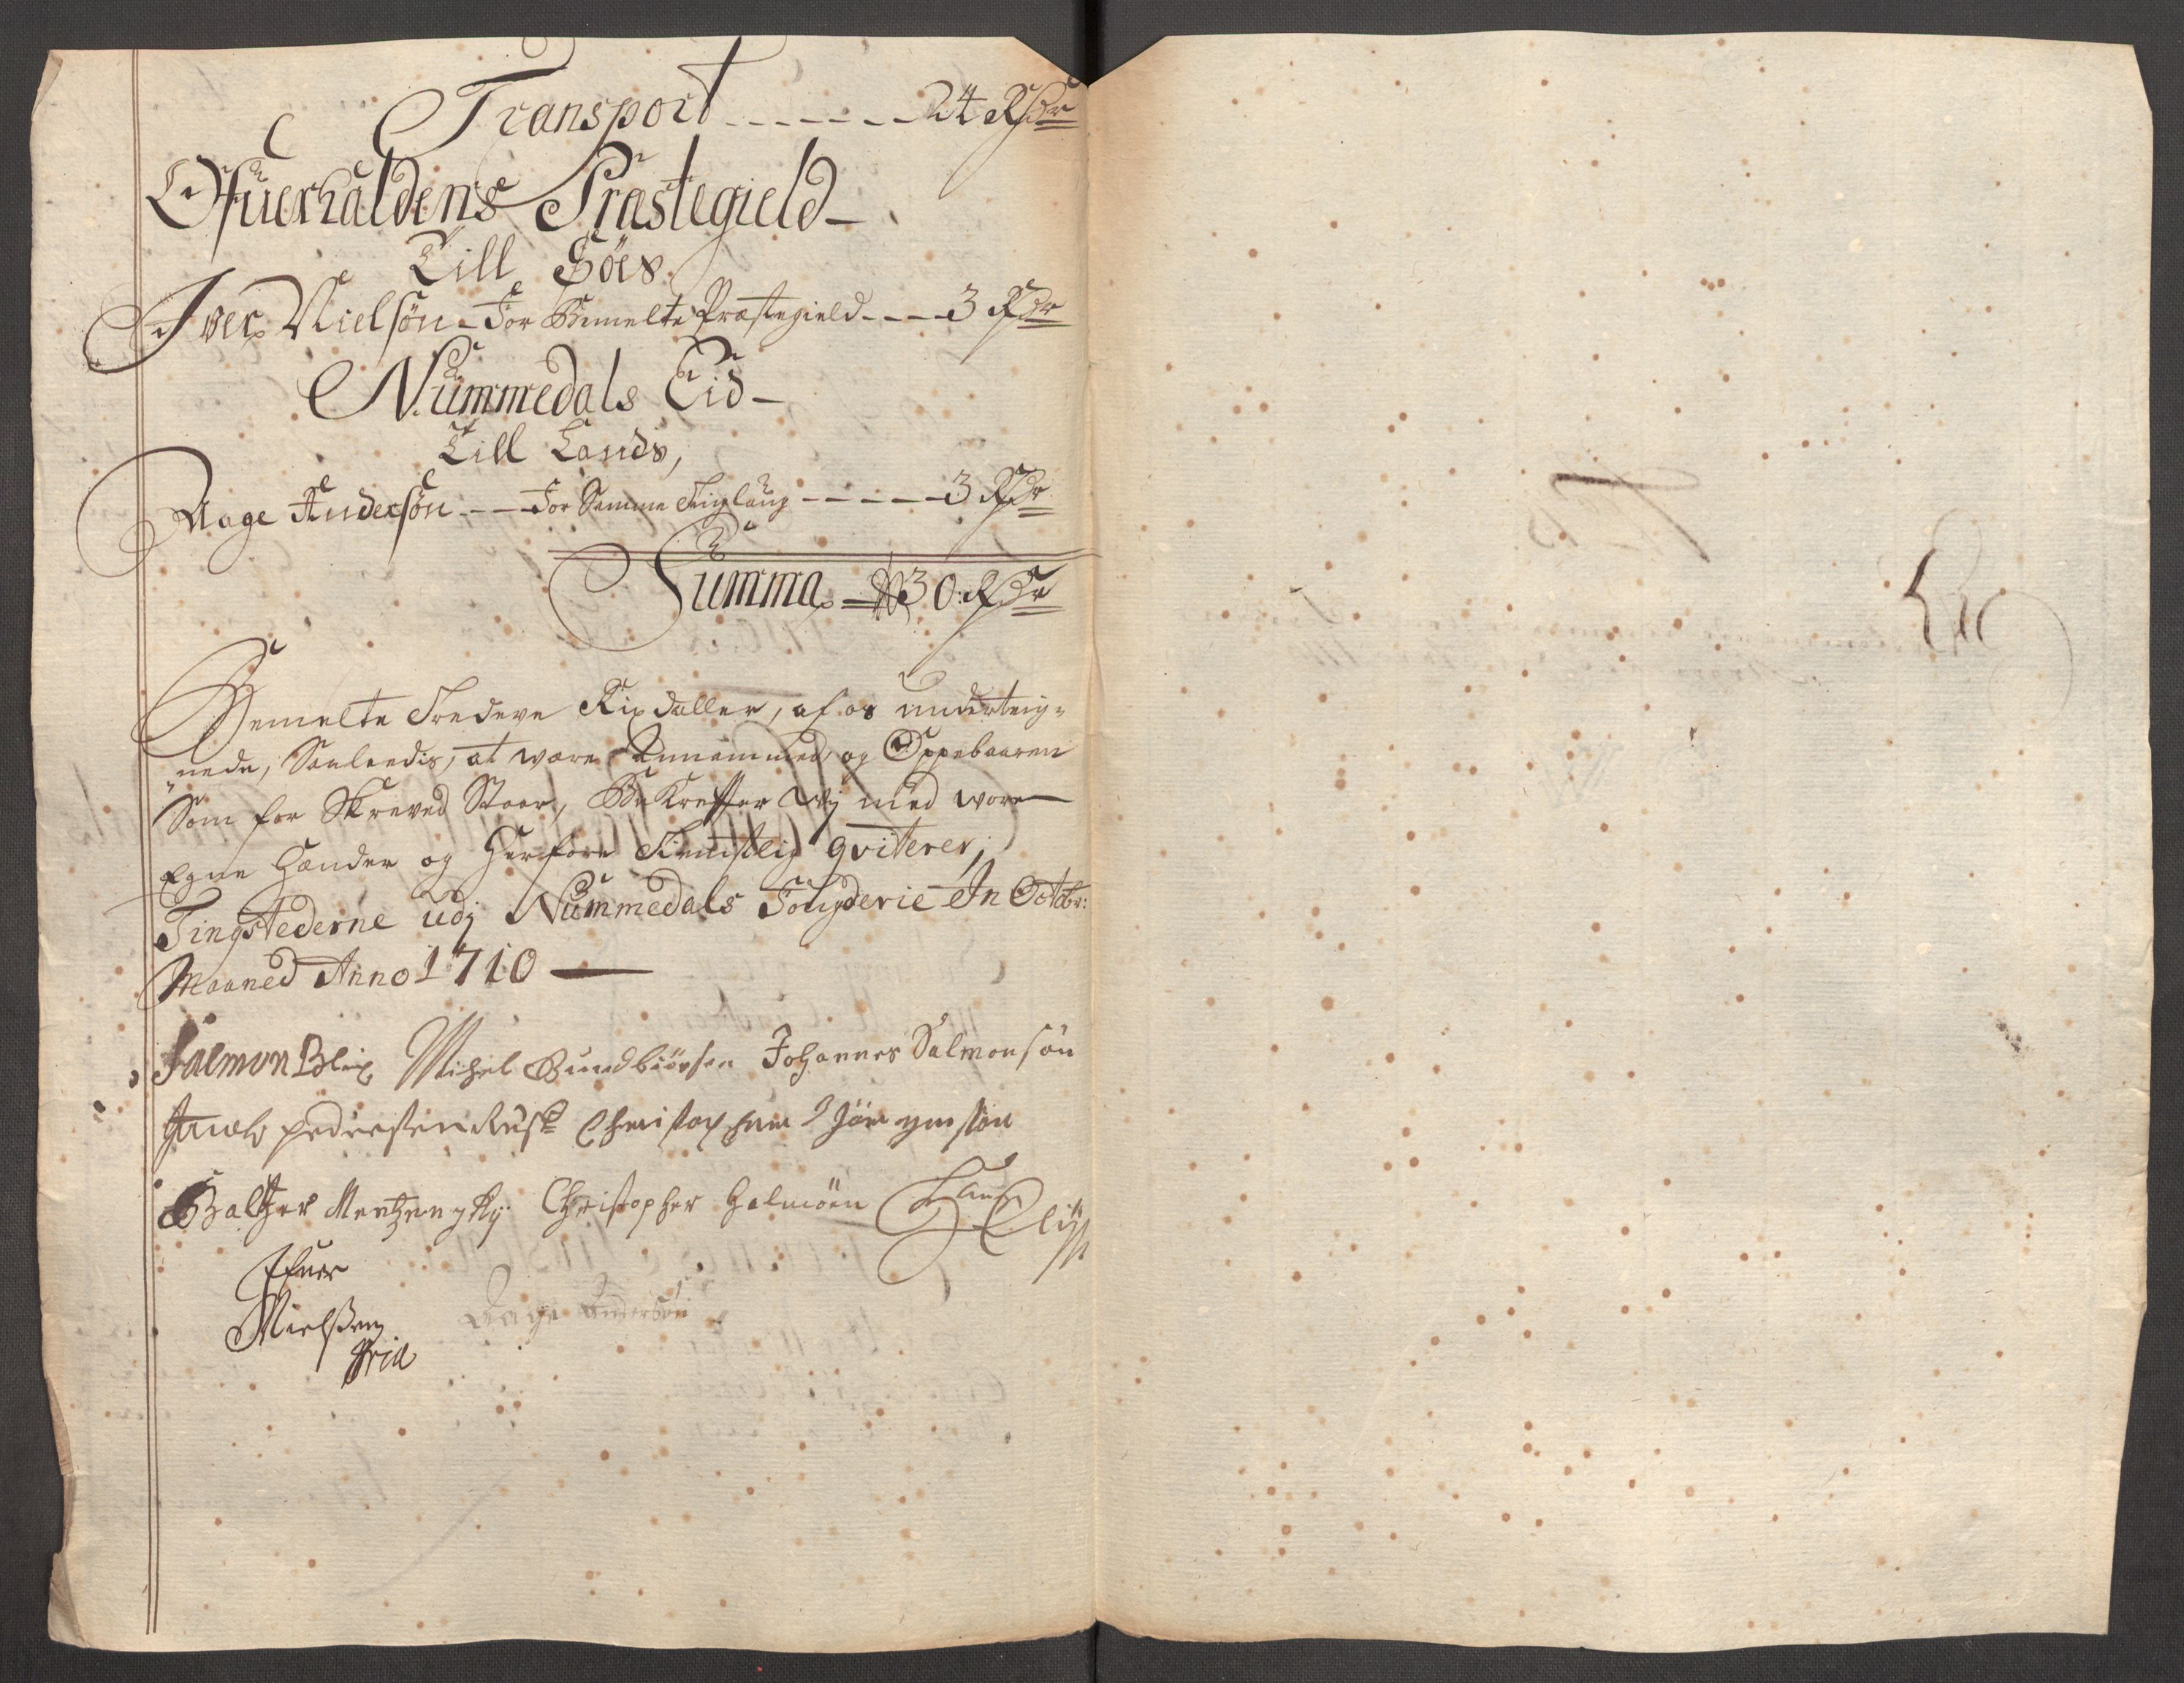 Transport - - - - - - 24 Rdr
Ofuerhaldens Præstegield -
Till Söes
Iver Nielsön - For Bemelte Præstegield - - - 3 Rdr
Nummedals Eid -
Till Lands,
Aage Andersön - - - For Samme Tinglaug - - - - - 3 Rdr
Summa - 30 Rdr
Bemelte Tredeve Rixdaller, af os underteig-
nede, Saaleedis, at være Annammed og Oppebaaren
Som for Skreved Staar, BeKrefter Wj med vore
Egne Hænder og Herfore Tienstlig qviterer,
Tingstederne udj Nummedals Fougderie In Octobr:
Maaned Anno 1710
Salmon Blix Michel Gundbiörsen Johannes Salmonsön
Jacob pedersen Rusk Christopher
Baltzer Christopher Halmöen Hans
Ifuer
Nielßen Aage Andersön